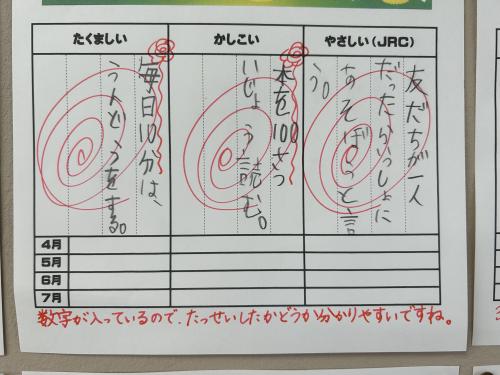 たくましい
かしこい
やさしい(JRC)
友だちが一人
だったらいっしょに
あそぼうと言
う。
本を100さつ
いじょう読む。
毎日10分は、
うんどうをする。
4月
5月
6月
7月
数字が入っているので、たっせいしたかどうか分かりやすいですね。